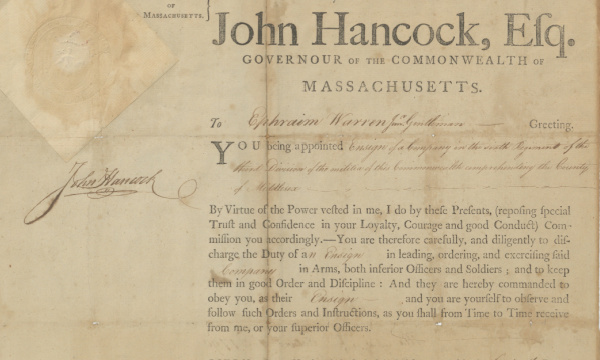 OF
MASSACHUSETTS.
John Hancock, Eſq.
GOVERNOUR OF THE COMMONWEALTH OF
MASSACHUSETTS.
To Ephraim Warren junr. Gentleman Greeting.
YOU being appointed Ensign of a Company in the sixth Regiment of the
third Division of the militia of this Commonwealth comprehending the County
of Middlesex
John Hancock
By Virtue of the Power veſted in me, I do by theſe Preſents, (repoſing ſpecial
Truſt and Confidence in your Loyalty, Courage and good Conduct) Com-
miſſion you accordingly.—You are therefore carefully, and diligently to diſ-
charge the Duty of an Ensign in leading, ordering, and exerciſing ſaid
Company in Arms, both inferior Officers and Soldiers ; and to keep
them in good Order and Diſcipline : And they are hereby commanded to
obey you, as their Ensign and you are yourſelf to obſerve and
follow ſuch Orders and Inſtructions, as you ſhall from Time to Time receive
from me, or your ſuperior Officers.